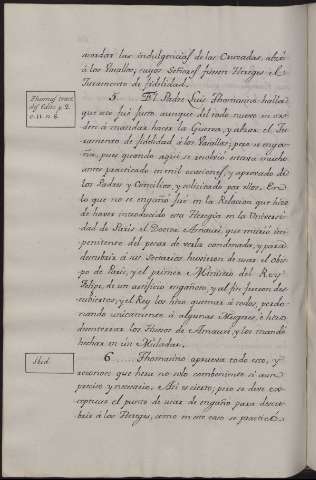 acordar las indulgencias de las Cruzadas, absol
á los Vasallos, cuyos Señores fuesen Hereges el
Juramento de fidelidad.
Thomas. tract.
des Edits p. 2.
c. 11. n. 6.
5. El Padre Luis Thomasino halla
que esto fué justo, aunque del todo nuevo en or
den á mandar hacer la Guerra, y alzar el Ju
ramento de fidelidad á los Vasallos; pero se enga
ña, pues quando aqui se resolvió estava mucho
antes practicado en mil ocasiones, y aprovado de
los Padres y Concilios, y solicitado por ellos. En lo
que no se engañó fué en la Relacion que hizo
de haver introducido esta Heregia en la Univer
sidad de Paris el Doctor Amauri, que murió im
penitente del pesar de verla condenada, y para
descubrir á sus Sectarios huvieron de usar el Obis
po de Paris, y el primer Ministro del Rey
Felipe, de un artificio engañoso, y al fin fueron des
cubiertos, y el Rey los hizo quemar á todos, perdo
nando unicamente á algunas Mugeres, é hizo
desenterrar los Huesos de Amauri y los mandó
hechar en un Muladar.
Ibid.
6. Thomasino aprueva todo esto, y
reconoce que hera no solo combeniente si aun
preciso y necesario. Asi es cierto; pero se deve ex
ceptuar el punto de usar de engaño para descu
brir á los Hereges, como en este caso se practicó.